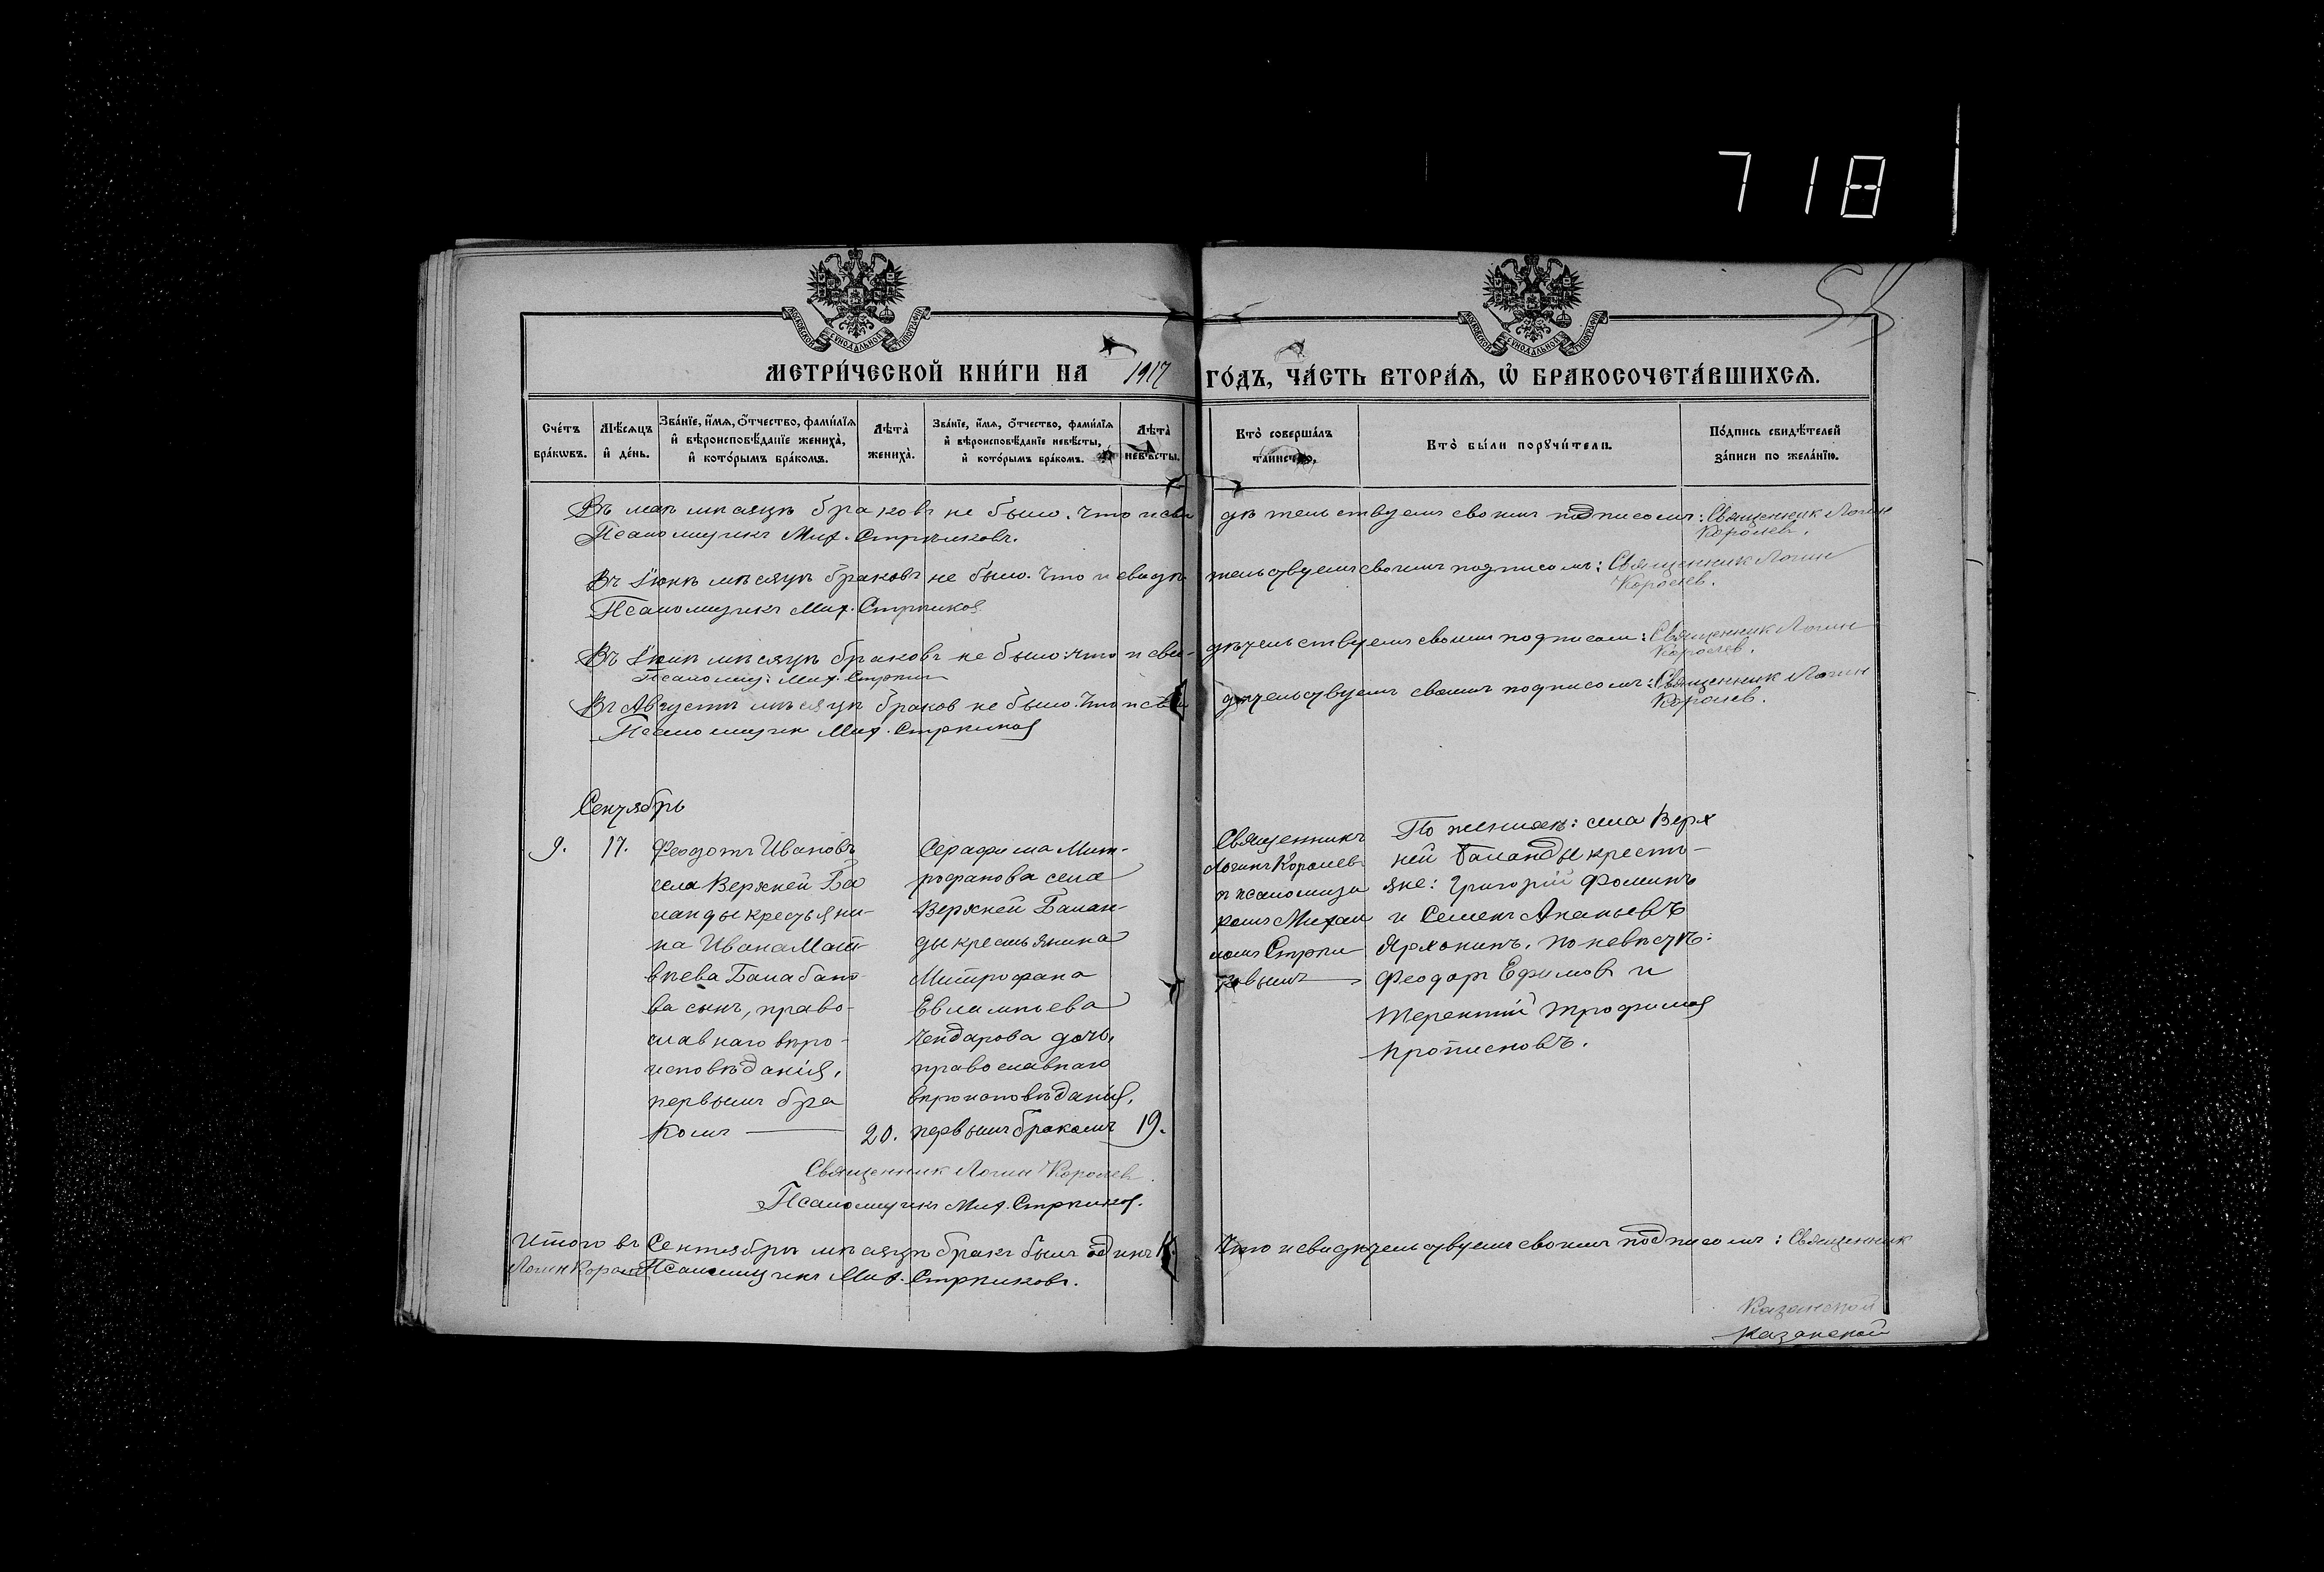 718
МОСКОВСКОЙ СѴНОДАЛЬНОЙ ТИПОГРАФІИ
МОСКОВСКОЙ СѴНОДАЛЬНОЙ ТИПОГРАФІИ
МЕТРИ́ЧЕСКОЙ КНИ́ГИ НА 1917 ГО́ДЪ, ЧА́СТЬ ВТОРА́Я, Ѽ БРАКОСОЧЕТА́ВШИХСЯ.
Сче́тъ бра́кѡвъ.
Мѣ́сяцъ и҆ де́нь.
Зва́нїе, и҆́мя, ѻ҆́тчество, фами́лїя и҆ вѣроисповѣ́данїе жениха̀, и҆ кото́рымъ бра́комъ.
Лѣта̀ жениха̀.
Зва́нїе, и҆́мя, ѻ҆́тчество, фами́лїя и҆ вѣроисповѣ́данїе невѣ́сты, и҆ кото́рымъ бра́комъ.
Лѣта̀ невѣ́сты.
Кто̀ соверша́лъ таинство.
Кто̀ бы́ли порꙋчи́тели.
По́дпись свидѣ́телей за́писи по жела́нїю.
Въ маѣ мѣсяцѣ браковъ не было. Что и сви дѣтельствуемъ своимъ подписомъ: Священник Логин
Королев.
Псаломщикъ Мих. Стрѣлковъ.
Въ Iюнѣ мѣсяцѣ браковъ не было. Что и свидѣ- тельствуемъ своимъ подписомъ: Священник Логин
Королев.
Псаломщикъ Мих.
Въ Iюлѣ мѣсяцѣ браковъ не было: что и сви- дѣтельствуемъ своим подписом: Священник Логин
Королев.
Псаломщ: Мих.
Въ Августѣ мѣсяцѣ браков не было. Что и сви дѣтельствуемъ своимъ подписомъ: Священник Логин
Королев.
Псаломщик Мих.
Сентябрь
9. 17.
Феодотъ Ивановъ
села Верхней Ба
ланды крестьяни-
на Ивана Мат-
вѣева Балабано-
ва сынъ, право-
славнаго вѣро-
исповѣданiя,
первымъ бра
комъ 20.
Серафима Мит-
рофанова села
Верхней Балан-
ды крестьянина
Митрофана
Евлампiева
Чендарова дочь,
православнаго
вѣроисповѣданiя,
первымъ бракомъ 19.
Священникъ
Логинъ Королев
и псаломщи
комъ Михаи
ломъ Стрѣл
ковымъ
По женихѣ: села Верх
ней Баланды кресть-
яне: Григорiй Фоминъ
и Семенъ Ананьевъ
по невѣстѣ:
Феодоръ Ефимов и
Терентiй Трофимов
Священник Логин Королев.
Псаломщикъ Мих.
Итого въ Сентябрѣ мѣсяцѣ бракъ былъ один Что и свидѣтельствуемъ своимъ подписомъ: Священник
Логин Королев Псаломщикъ Мих. Стрѣлковъ.
Казанской
Казанской